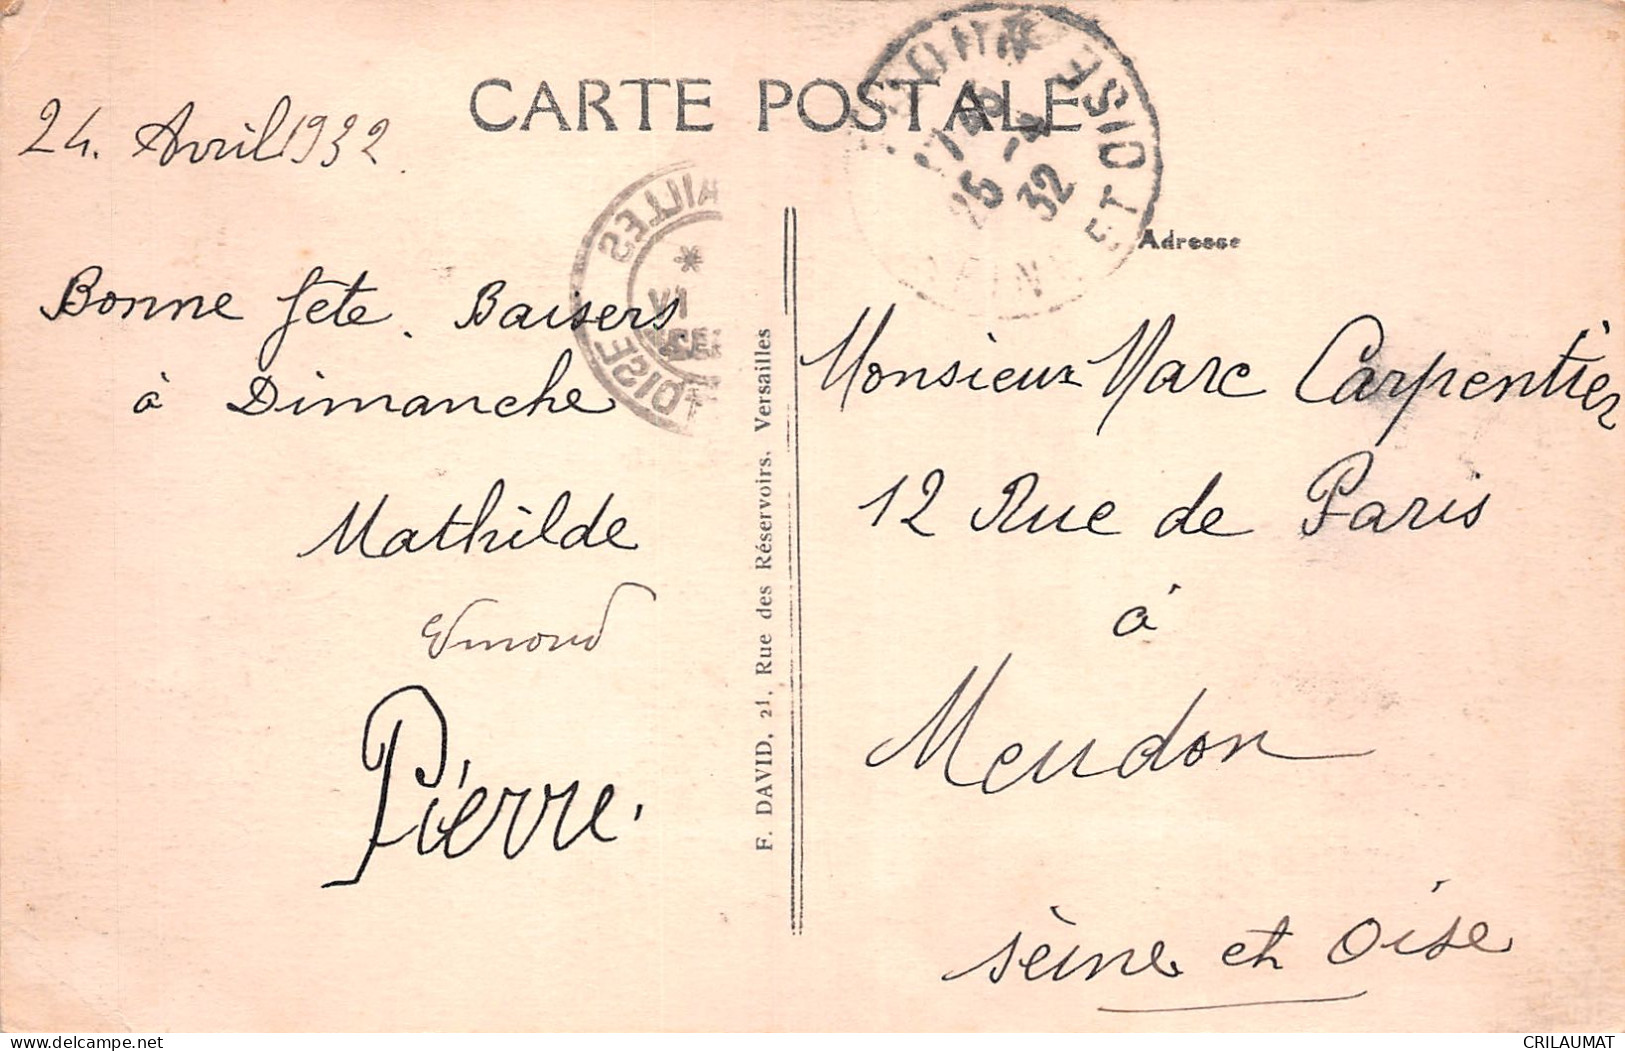 CARTE POSTALE
24. Avril 1932
Bonne fete. Baisers
à Dimanche
Mathilde
Edmond
Pierre.
F. DAVID, 21, Rue des Réservoirs, Versailles
ET OISE
25 -4
32
Adresse
Monsieur Marc Carpentier
12 Rue de Paris
à
Meudon
Seine et Oise
CRILAUMAT